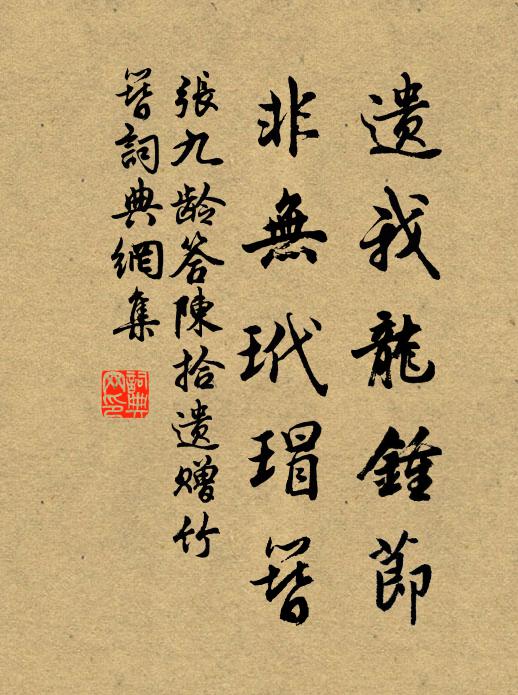 遗我龍鍾節
非無玳瑁簪
張九龄答陳拾遗赠竹
簪詞典網集
詞典網印